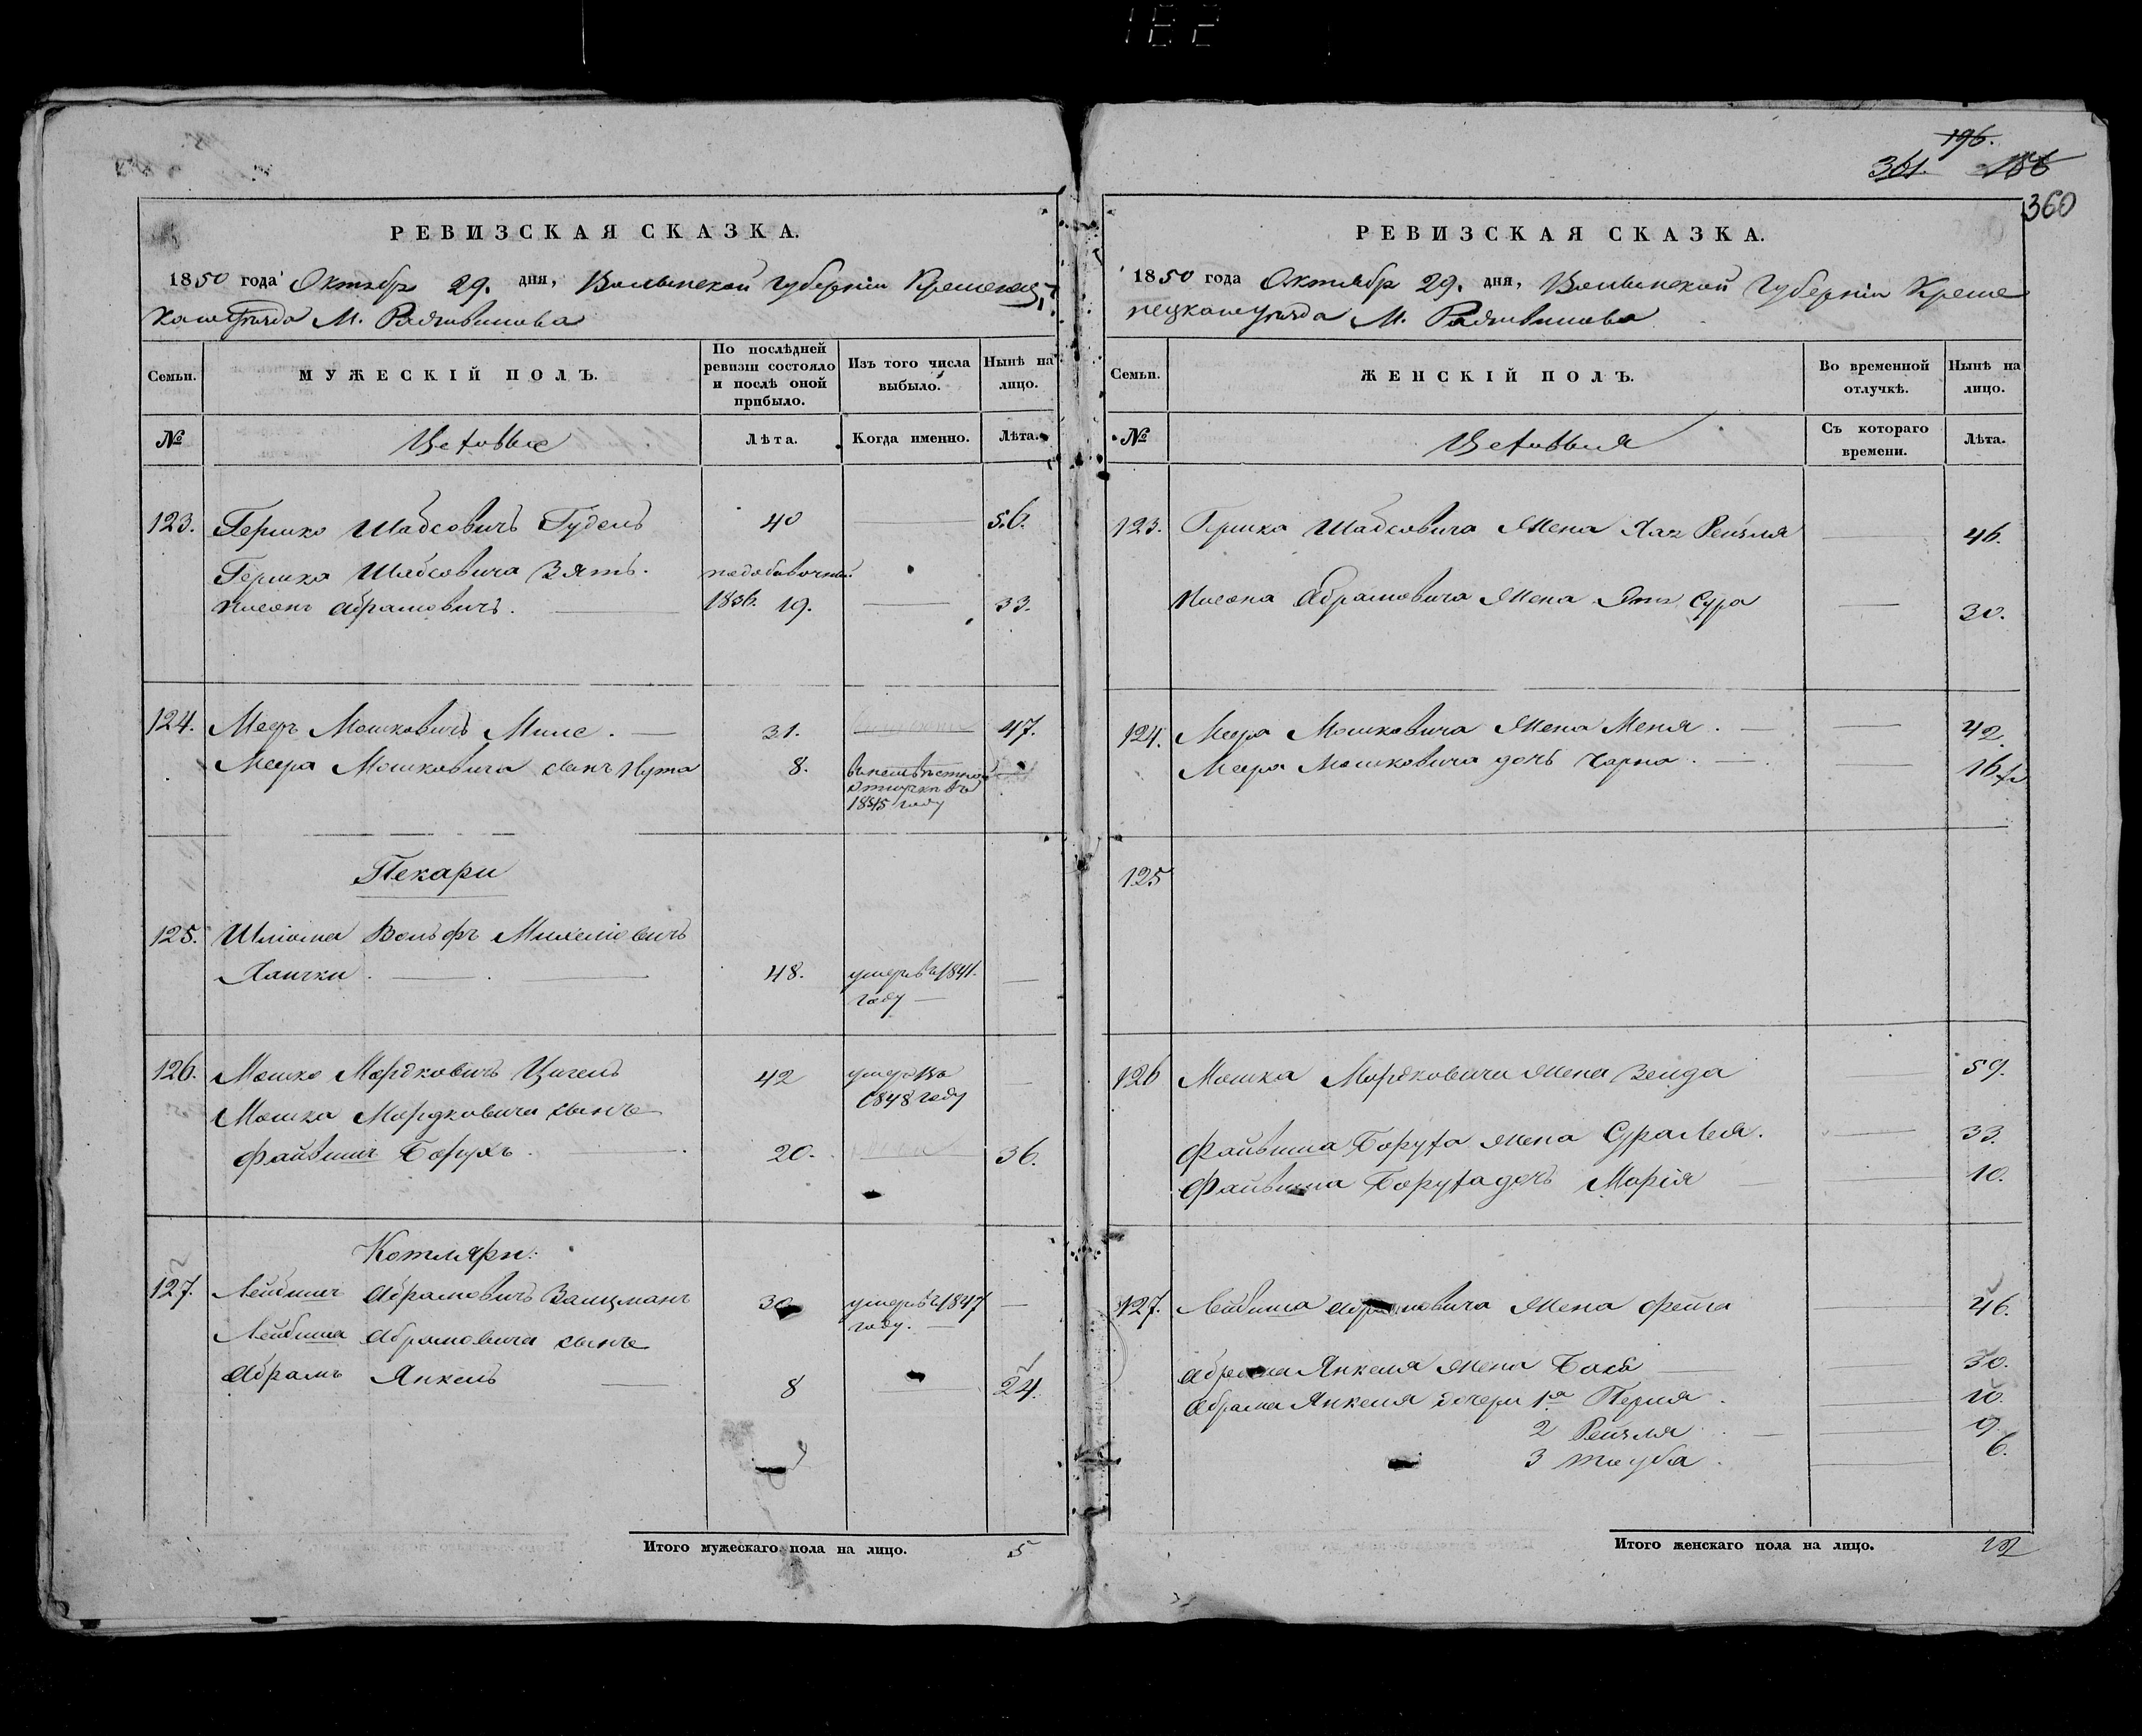 182
РЕВИЗСКАЯ СКАЗКА.
1850 года Октября 29. дня, Волынской Губерніи Кременец
каго уѣзда М. Радзивилова
Семьи.
МУЖЕСКІЙ ПОЛЪ.
По послѣдней ревизіи состояло и послѣ оной прибыло.
Изъ того числа выбыло.
Нынѣ на лицо.
№
Цеховые
Лѣта.
Когда именно.
Лѣта.
123. Гершко Шабсовичъ Гудель 40 56.
Гершка Шабсовича Зять
Нисонъ Абрамовичъ. 1836. 19. 33.
124. Мееръ Мошковичъ 31. 47.
Меера Мошковича сынъ Нута 8. въ неизвѣстной
отлучкѣ въ
1845 году
Пекари
125. Шліома Вольфъ Михеліовичъ
48. умеръ въ 1841.
году
126. Мошко Мордковичъ Цигель 42 умеръ въ
1848 году
Мошка Мордковича сынъ
Файвишъ Борухъ 20. 36.
Котляри:
127. Лейбишъ Абрамовичъ Вайцманъ 30 умеръ въ 1847
году.
Лейбиша Абрамовича сынъ
Абрамъ Янкель 8 24.
Итого мужескаго пола на лицо. 5
196.
361.
360
РЕВИЗСКАЯ СКАЗКА.
1850 года Октября 29. дня, Волынской Губерніи Креме
нецкаго уѣзда М. Радзивилова
Семьи.
ЖЕНСКІЙ ПОЛЪ.
Во временной отлучкѣ.
Нынѣ на лицо.
№
Цеховыя
Съ котораго времени.
Лѣта.
123. Гершка Шабсовича Жена Рейзля 46.
Нисона Абрамовича Жена Сура 30.
124. Меера Мошковича Жена Меня. 42.
Меера Мошковича дочь Чарна. 16
125
126 Мошка Мордковича Жена 59.
Файвиша Боруха жена Сура Лея. 33.
Файвиша Боруха дочь Марія 10.
127. Лейбиша Абрамовича Жена Фейга 46.
Абрама Янкеля жена Бася 30.
Абрама Янкеля дочери 1я Перля 10.
2 Рейзля 9
3 Тауба 6.
Итого женскаго пола на лицо. 12